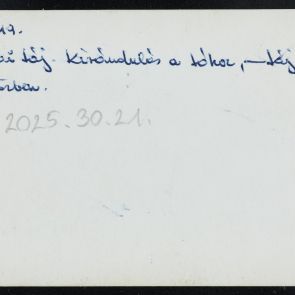 47.
táj. Kirándulás a tóhoz, – táj
2025.30.21.